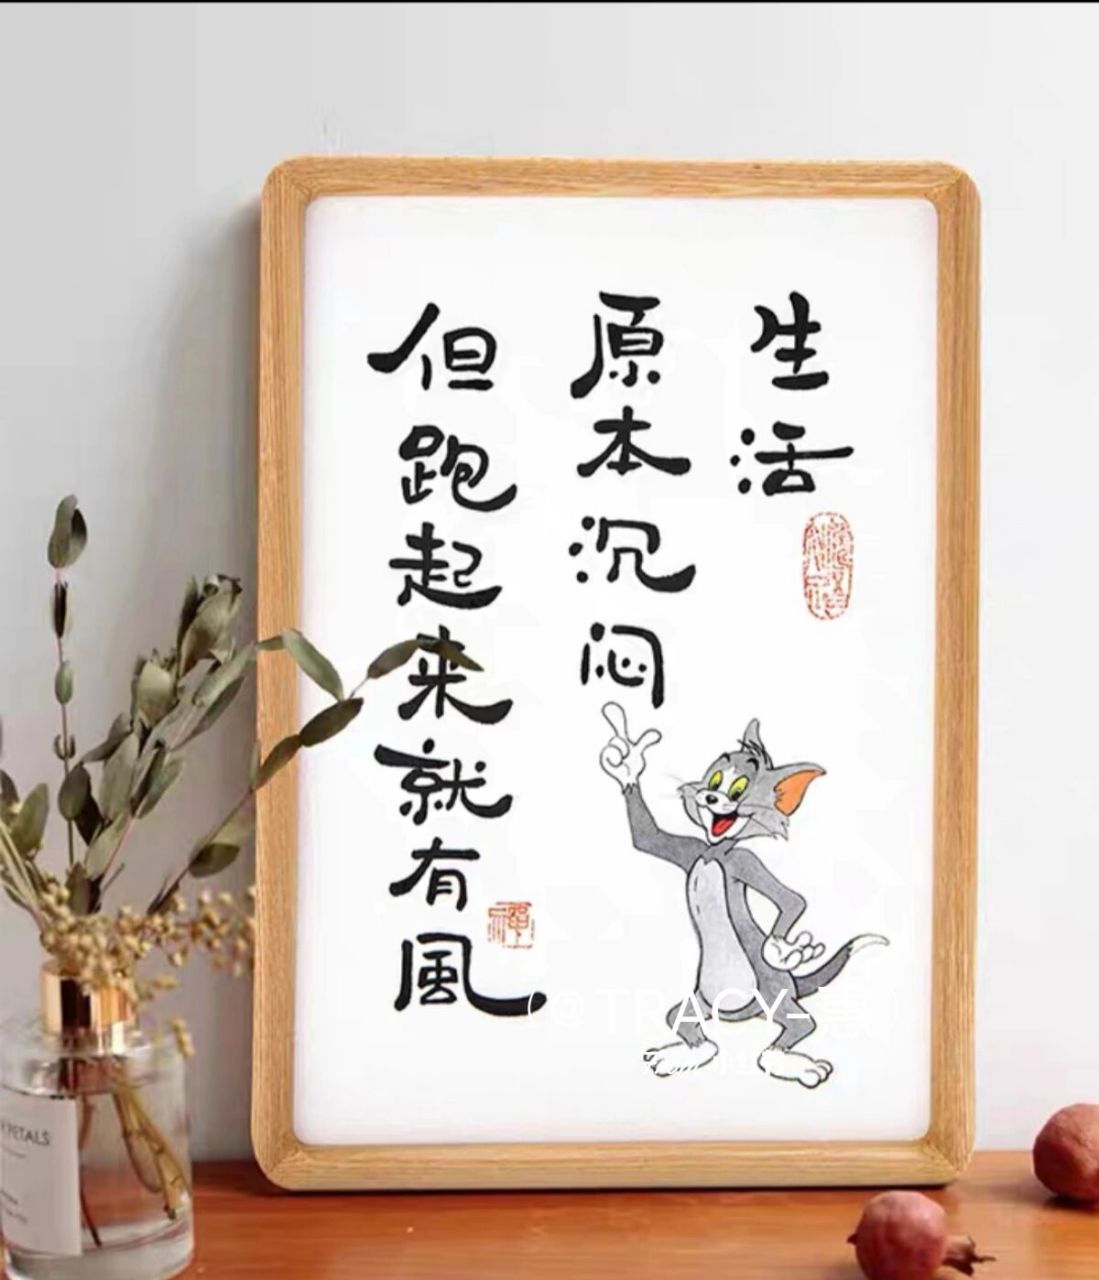 生活
原本沉闷
但跑起来就有風
禪
@TRACY-惠
PETALS